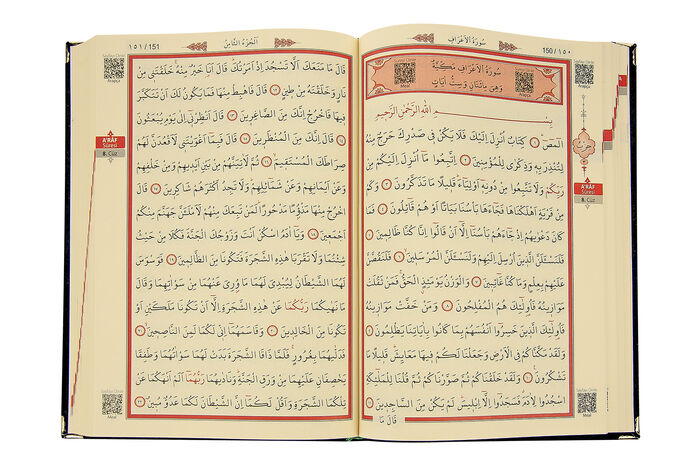 سُورَةُ الْأَعْرَافِ
150 / ١٥٠
سُورَةُ الْأَعْرَافِ مَكِّيَّةٌ
وَهِيَ مِائَتَانِ وَسِتُّ اٰيَاتٍ
Meal
Arapça
بِسْمِ اللّٰهِ الرَّحْمٰنِ الرَّحِيمِ
الٓمٓصٓ ۝١ كِتَابٌ اُنْزِلَ اِلَيْكَ فَلَا يَكُنْ فِى صَدْرِكَ حَرَجٌ مِنْهُ
لِتُنْذِرَ بِهِ وَذِكْرٰى لِلْمُؤْمِنِينَ ۝٢ اِتَّبِعُوا مَٓا اُنْزِلَ اِلَيْكُمْ مِنْ
رَبِّكُمْ وَلَا تَتَّبِعُوا مِنْ دُونِهِٓ اَوْلِيَٓاءَ قَلِيلًا مَا تَذَكَّرُونَ ۝٣ وَكَمْ
مِنْ قَرْيَةٍ اَهْلَكْنَاهَا فَجَٓاءَهَا بَأْسُنَا بَيَاتًا اَوْ هُمْ قَٓائِلُونَ ۝٤ فَمَا
كَانَ دَعْوٰيهُمْ اِذْ جَٓاءَهُمْ بَأْسُنَٓا اِلَّٓا اَنْ قَالُٓوا اِنَّا كُنَّا ظَالِمِينَ ۝٥
فَلَنَسْـَٔلَنَّ الَّذِينَ اُرْسِلَ اِلَيْهِمْ وَلَنَسْـَٔلَنَّ الْمُرْسَلِينَ ۝٦ فَلَنَقُصَّنَّ
عَلَيْهِمْ بِعِلْمٍ وَمَا كُنَّا غَٓائِبِينَ ۝٧ وَالْوَزْنُ يَوْمَئِذٍ الْحَقُّ فَمَنْ ثَقُلَتْ
مَوَازِينُهُ فَاُولٰٓئِكَ هُمُ الْمُفْلِحُونَ ۝٨ وَمَنْ خَفَّتْ مَوَازِينُهُ
فَاُولٰٓئِكَ الَّذِينَ خَسِرُٓوا اَنْفُسَهُمْ بِمَا كَانُوا بِاٰيَاتِنَا يَظْلِمُونَ ۝٩
وَلَقَدْ مَكَّنَّاكُمْ فِى الْاَرْضِ وَجَعَلْنَا لَكُمْ فِيهَا مَعَايِشَ قَلِيلًا مَا
تَشْكُرُونَ ۝١٠ وَلَقَدْ خَلَقْنَاكُمْ ثُمَّ صَوَّرْنَاكُمْ ثُمَّ قُلْنَا لِلْمَلٰٓئِكَةِ
اسْجُدُوا لِاٰدَمَ فَسَجَدُٓوا اِلَّٓا اِبْلِيسَ لَمْ يَكُنْ مِنَ السَّاجِدِينَ ۝١١
قَالَ مَا
حزب
A'RÂF
Sûresi
8. Cüz
Meal
اَلْجُزْءُ الثَّامِنُ
١٥١ / 151
قَالَ مَا مَنَعَكَ اَلَّا تَسْجُدَ اِذْ اَمَرْتُكَ قَالَ اَنَا خَيْرٌ مِنْهُ خَلَقْتَنِى مِنْ
نَارٍ وَخَلَقْتَهُ مِنْ طِينٍ ۝١٢ قَالَ فَاهْبِطْ مِنْهَا فَمَا يَكُونُ لَكَ اَنْ تَتَكَبَّرَ
فِيهَا فَاخْرُجْ اِنَّكَ مِنَ الصَّاغِرِينَ ۝١٣ قَالَ اَنْظِرْنِٓى اِلٰى يَوْمِ يُبْعَثُونَ
۝١٤ قَالَ اِنَّكَ مِنَ الْمُنْظَرِينَ ۝١٥ قَالَ فَبِمَٓا اَغْوَيْتَنِى لَاَقْعُدَنَّ لَهُمْ
صِرَاطَكَ الْمُسْتَقِيمَ ۝١٦ ثُمَّ لَاٰتِيَنَّهُمْ مِنْ بَيْنِ اَيْدِيهِمْ وَمِنْ خَلْفِهِمْ
وَعَنْ اَيْمَانِهِمْ وَعَنْ شَمَٓائِلِهِمْ وَلَا تَجِدُ اَكْثَرَهُمْ شَاكِرِينَ ۝١٧ قَالَ
اخْرُجْ مِنْهَا مَذْؤُمًا مَدْحُورًا لَمَنْ تَبِعَكَ مِنْهُمْ لَاَمْلَـَٔنَّ جَهَنَّمَ مِنْكُمْ
اَجْمَعِينَ ۝١٨ وَيَٓا اٰدَمُ اسْكُنْ اَنْتَ وَزَوْجُكَ الْجَنَّةَ فَكُلَا مِنْ حَيْثُ
شِئْتُمَا وَلَا تَقْرَبَا هٰذِهِ الشَّجَرَةَ فَتَكُونَا مِنَ الظَّالِمِينَ ۝١٩ فَوَسْوَسَ
لَهُمَا الشَّيْطَانُ لِيُبْدِىَ لَهُمَا مَا وُرِىَ عَنْهُمَا مِنْ سَوْاٰتِهِمَا وَقَالَ
مَا نَهٰيكُمَا رَبُّكُمَا عَنْ هٰذِهِ الشَّجَرَةِ اِلَّٓا اَنْ تَكُونَا مَلَكَيْنِ اَوْ
تَكُونَا مِنَ الْخَالِدِينَ ۝٢٠ وَقَاسَمَهُمَٓا اِنِّى لَكُمَا لَمِنَ النَّاصِحِينَ ۝٢١
فَدَلّٰيهُمَا بِغُرُورٍ فَلَمَّا ذَاقَا الشَّجَرَةَ بَدَتْ لَهُمَا سَوْاٰتُهُمَا وَطَفِقَا
يَخْصِفَانِ عَلَيْهِمَا مِنْ وَرَقِ الْجَنَّةِ وَنَادٰيهُمَا رَبُّهُمَٓا اَلَمْ اَنْهَكُمَا عَنْ
تِلْكُمَا الشَّجَرَةِ وَاَقُلْ لَكُمَٓا اِنَّ الشَّيْطَانَ لَكُمَا عَدُوٌّ مُبِينٌ ۝٢٢
Arapça
A'RÂF
Sûresi
8. Cüz
Meal